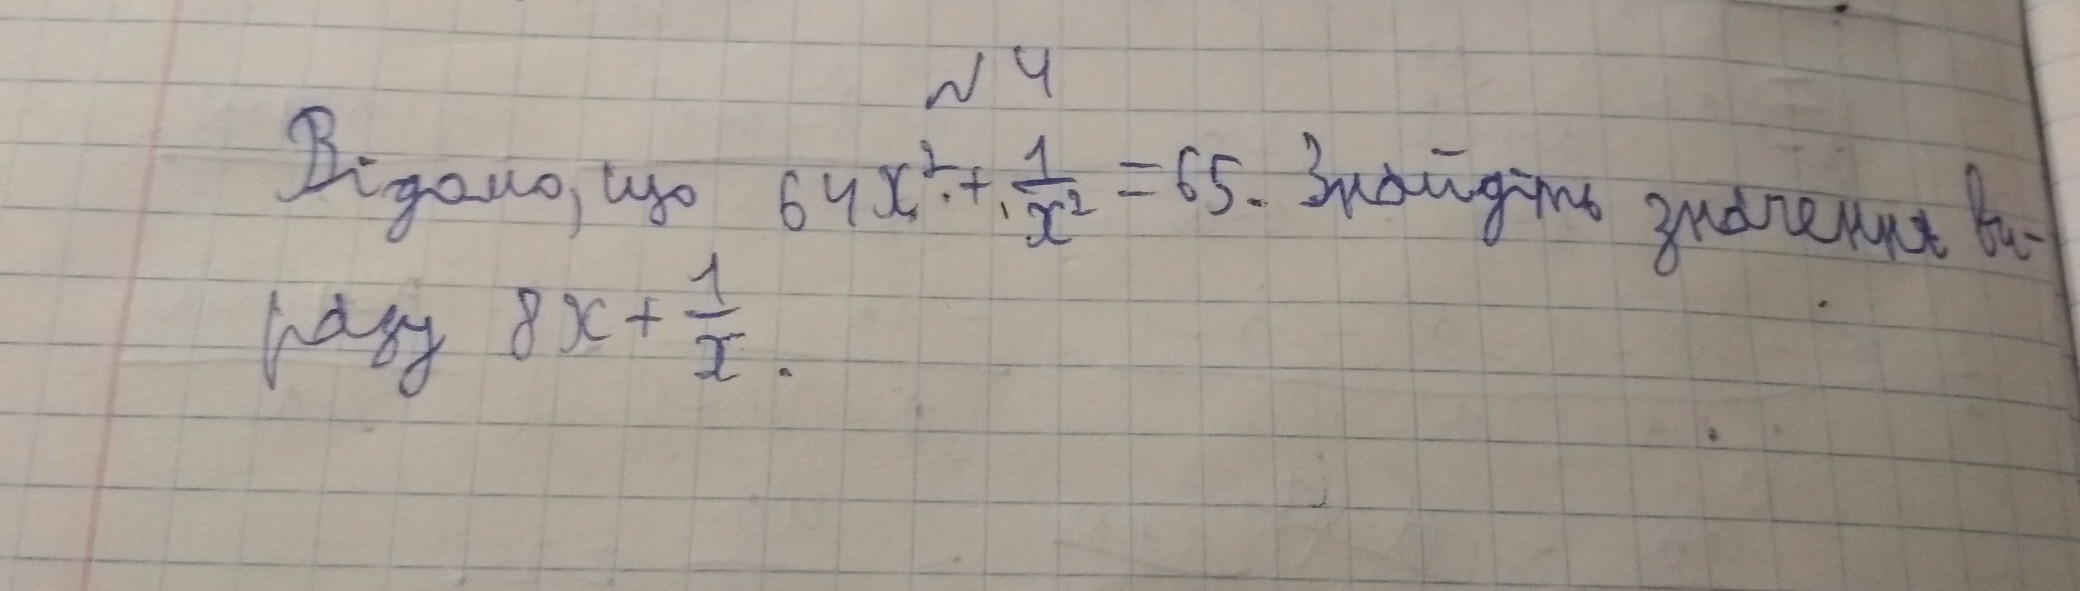 № 4
Відомо, що 64x² + 1/x² = 65. Знайдіть значення ви-
разу 8x + 1/x.